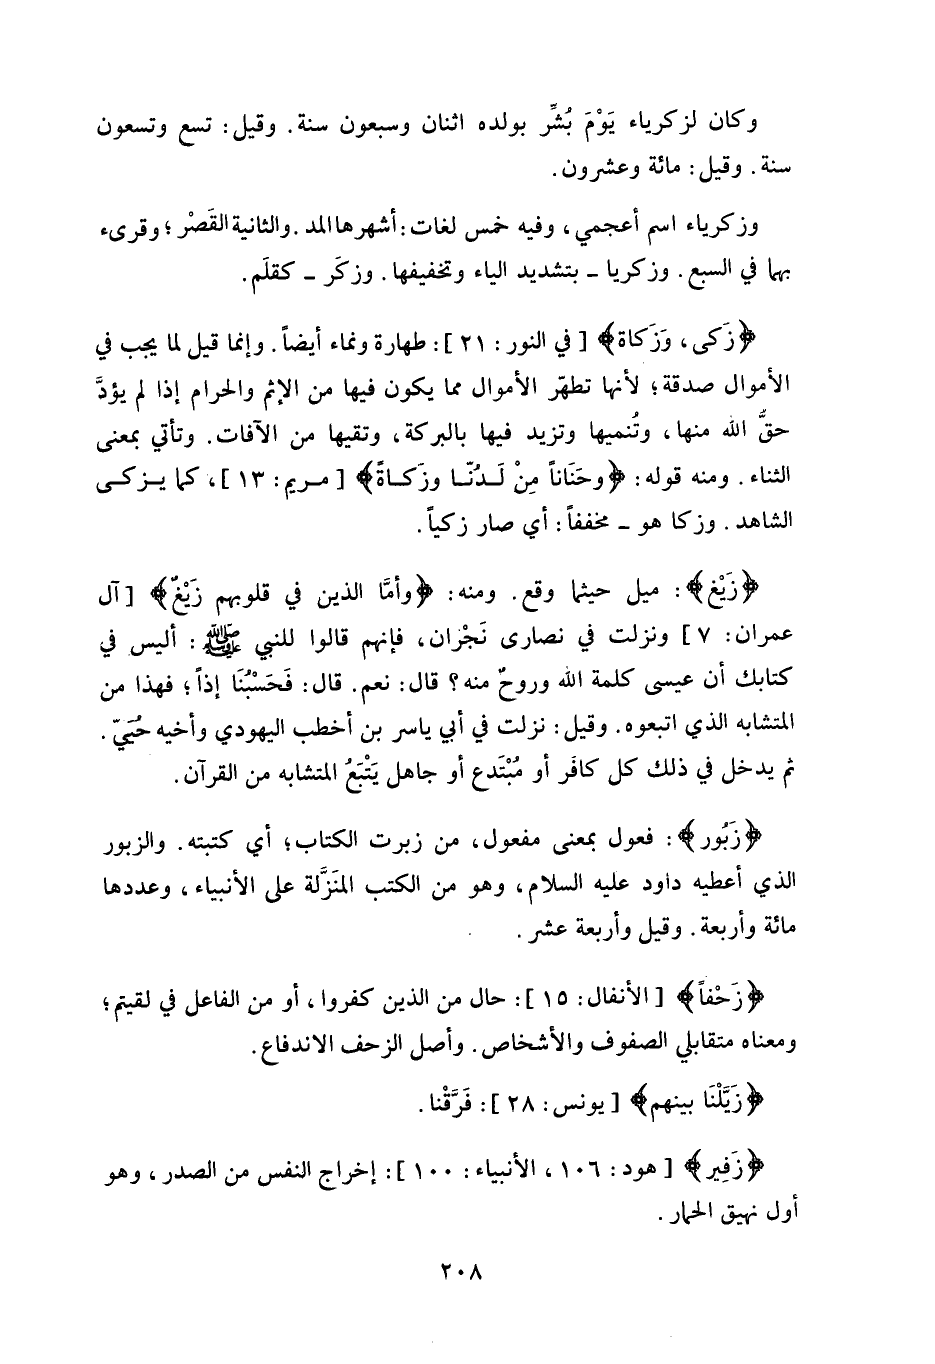 وكان لزكرياء يَوْمَ بُشِّر بولده اثنان وسبعون سنة. وقيل: تسع وتسعون
سنة. وقيل: مائة وعشرون.
وزكرياء اسم أعجمي، وفيه خمس لغات: أشهرها المد. والثانية القَصْر؛ وقرىء
بهما في السبع. وزكريا - بتشديد الياء وتخفيفها. وزكَر - كقلَم.
﴿زَكى، وَزَكاة﴾ [في النور: ٢١]: طهارة ونماء أيضاً. وإنما قيل لما يجب في
الأموال صدقة؛ لأنها تطهّر الأموال مما يكون فيها من الإثم والحرام إذا لم يؤدَّ
حقُّ الله منها، وتُنميها وتزيد فيها بالبركة، وتقيها من الآفات. وتأتي بمعنى
الثناء. ومنه قوله: ﴿وحَنَاناً مِنْ لَدُنّا وزَكاةً﴾ [مريم: ١٣]، كما يزكى
الشاهد. وزكا هو - مخففاً: أي صار زكياً.
﴿زَيْغ﴾: ميل حيثما وقع. ومنه: ﴿وأمَّا الذين في قلوبهم زَيْغٌ﴾ [آل
عمران: ٧] ونزلت في نصارى نَجْران، فإنهم قالوا للنبي ﷺ: أليس في
كتابك أن عيسى كلمة الله وروحٌ منه؟ قال: نعم. قال: فَحَسْبُنَا إذاً؛ فهذا من
المتشابه الذي اتبعوه. وقيل: نزلت في أبي ياسر بن أخطب اليهودي وأخيه حُيَيّ.
ثم يدخل في ذلك كل كافر أو مُبْتَدع أو جاهل يَتْبَعُ المتشابه من القرآن.
﴿زَبُور﴾: فعول بمعنى مفعول، من زبرت الكتاب؛ أي كتبته. والزبور
الذي أعطيه داود عليه السلام، وهو من الكتب المنَزَّلة على الأنبياء، وعددها
مائة وأربعة. وقيل وأربعة عشر.
﴿زَحْفاً﴾ [الأنفال: ١٥]: حال من الذين كفروا، أو من الفاعل في لقيتم؛
ومعناه متقابلي الصفوف والأشخاص. وأصل الزحف الاندفاع.
﴿زَيَّلْنَا بينهم﴾ [يونس: ٢٨]: فَرَّقْنا.
﴿زَفِير﴾ [هود: ١٠٦، الأنبياء: ١٠٠]: إخراج النفس من الصدر، وهو
أول نهيق الحمار.
٢٠٨